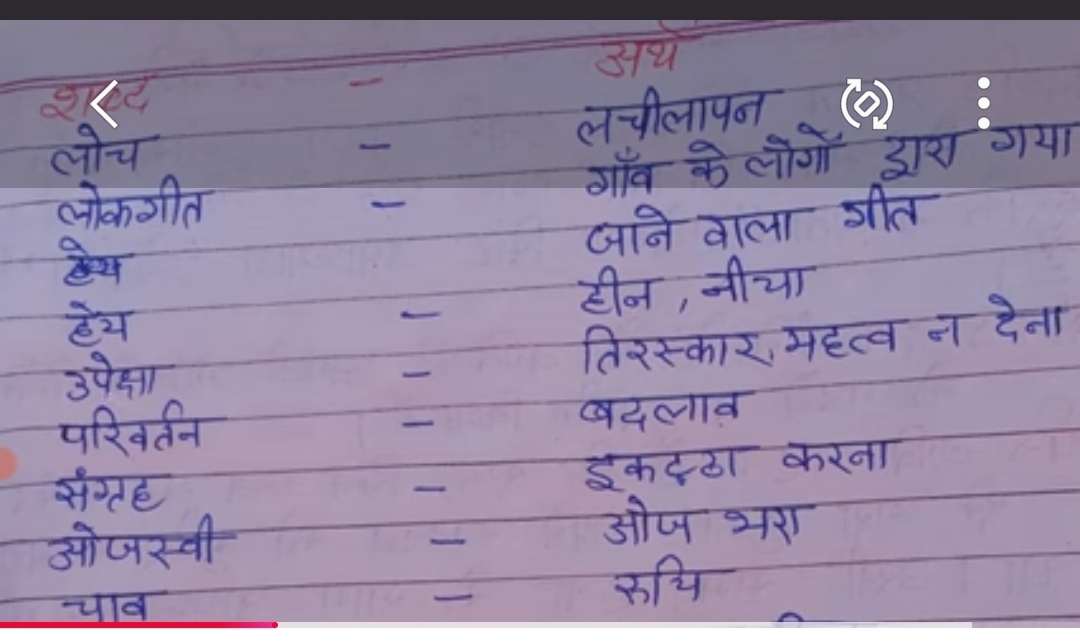 शब्द - अर्थ
लोच - लचीलापन
लोकगीत - गाँव के लोगों द्वारा गया
जाने वाला गीत
हेय
हेय - हीन, नीचा
उपेक्षा - तिरस्कार, महत्व न देना
परिवर्तन - बदलाव
संग्रह - इकट्ठा करना
ओजस्वी - ओज भरा
चाव - रुचि